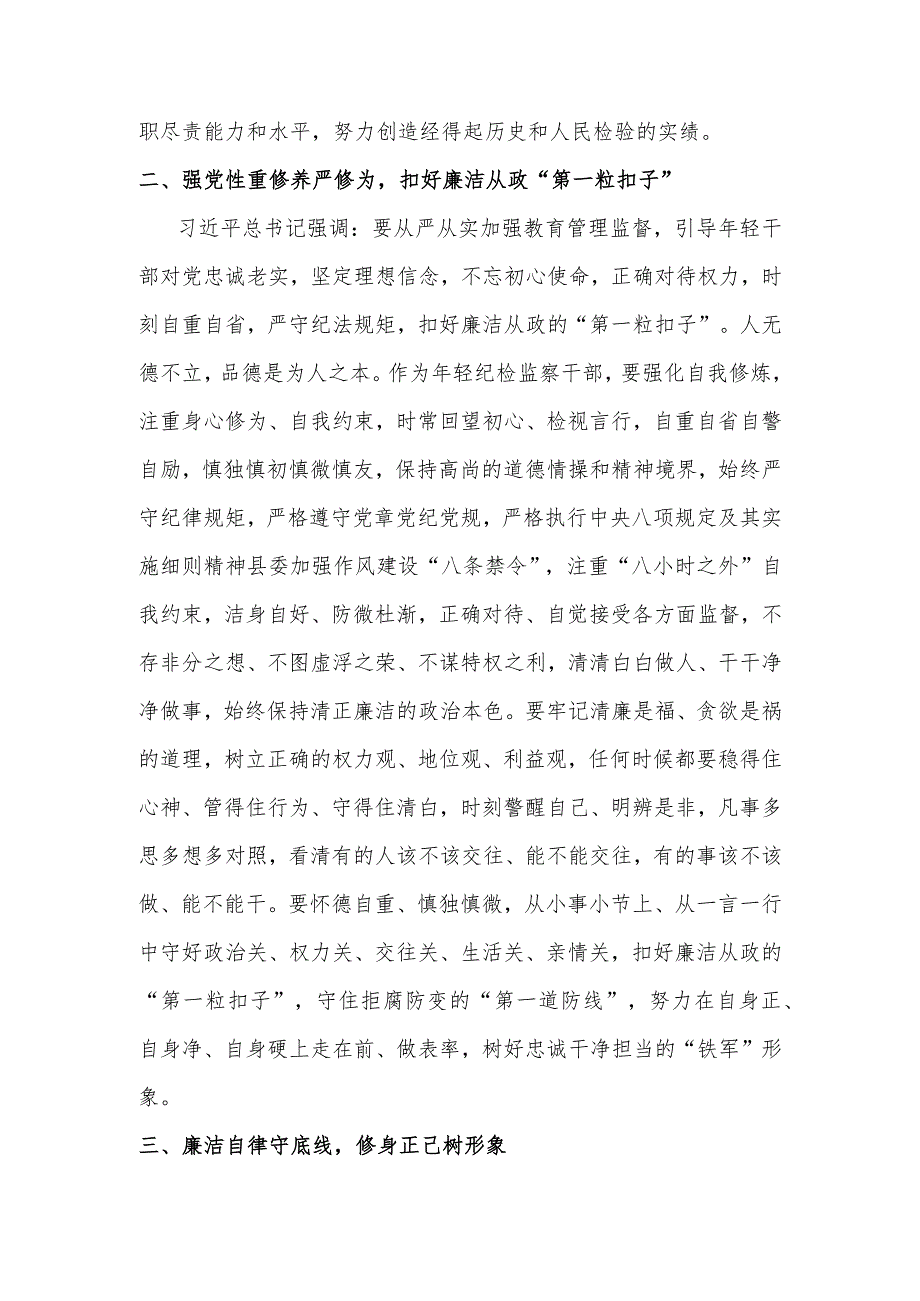 职尽责能力和水平，努力创造经得起历史和人民检验的实绩。
二、强党性重修养严修为，扣好廉洁从政“第一粒扣子”
习近平总书记强调：要从严从实加强教育管理监督，引导年轻干
部对党忠诚老实，坚定理想信念，不忘初心使命，正确对待权力，时
刻自重自省，严守纪法规矩，扣好廉洁从政的“第一粒扣子”。人无
德不立，品德是为人之本。作为年轻纪检监察干部，要强化自我修炼，
注重身心修为、自我约束，时常回望初心、检视言行，自重自省自警
自励，慎独慎初慎微慎友，保持高尚的道德情操和精神境界，始终严
守纪律规矩，严格遵守党章党纪党规，严格执行中央八项规定及其实
施细则精神县委加强作风建设“八条禁令”，注重“八小时之外”自
我约束，洁身自好、防微杜渐，正确对待、自觉接受各方面监督，不
存非分之想、不图虚浮之荣、不谋特权之利，清清白白做人、干干净
净做事，始终保持清正廉洁的政治本色。要牢记清廉是福、贪欲是祸
的道理，树立正确的权力观、地位观、利益观，任何时候都要稳得住
心神、管得住行为、守得住清白，时刻警醒自己、明辨是非，凡事多
思多想多对照，看清有的人该不该交往、能不能交往，有的事该不该
做、能不能干。要怀德自重、慎独慎微，从小事小节上、从一言一行
中守好政治关、权力关、交往关、生活关、亲情关，扣好廉洁从政的
“第一粒扣子”，守住拒腐防变的“第一道防线”，努力在自身正、
自身净、自身硬上走在前、做表率，树好忠诚干净担当的“铁军”形
象。
三、廉洁自律守底线，修身正己树形象